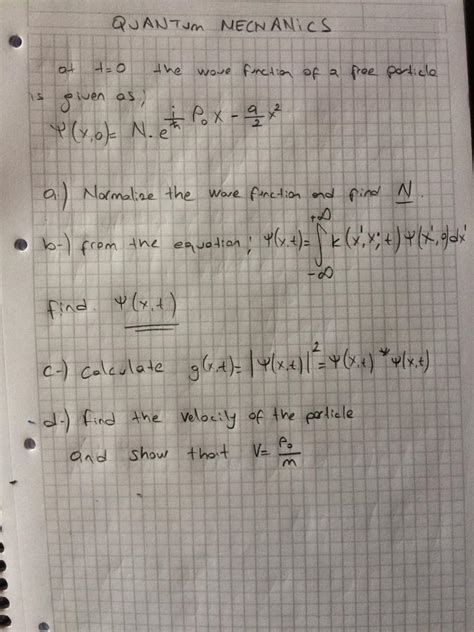 QUANTUM NECNANICS
at t=0 the wave function of a free particle
is given as;
Ψ(x,0)= N. e^{i/ħ P₀x - a/2 x²}
a.) Normalize the wave function and find N.
b-) from the equation; Ψ(x,t)=∫_{-∞}^{+∞} k(x',x;t) Ψ(x',0)dx'
find Ψ(x,t)
c-) calculate g(x,t)= |Ψ(x,t)|² = Ψ(x,t)* Ψ(x,t)
d-) find the velocity of the particle
and show that V= P₀/m